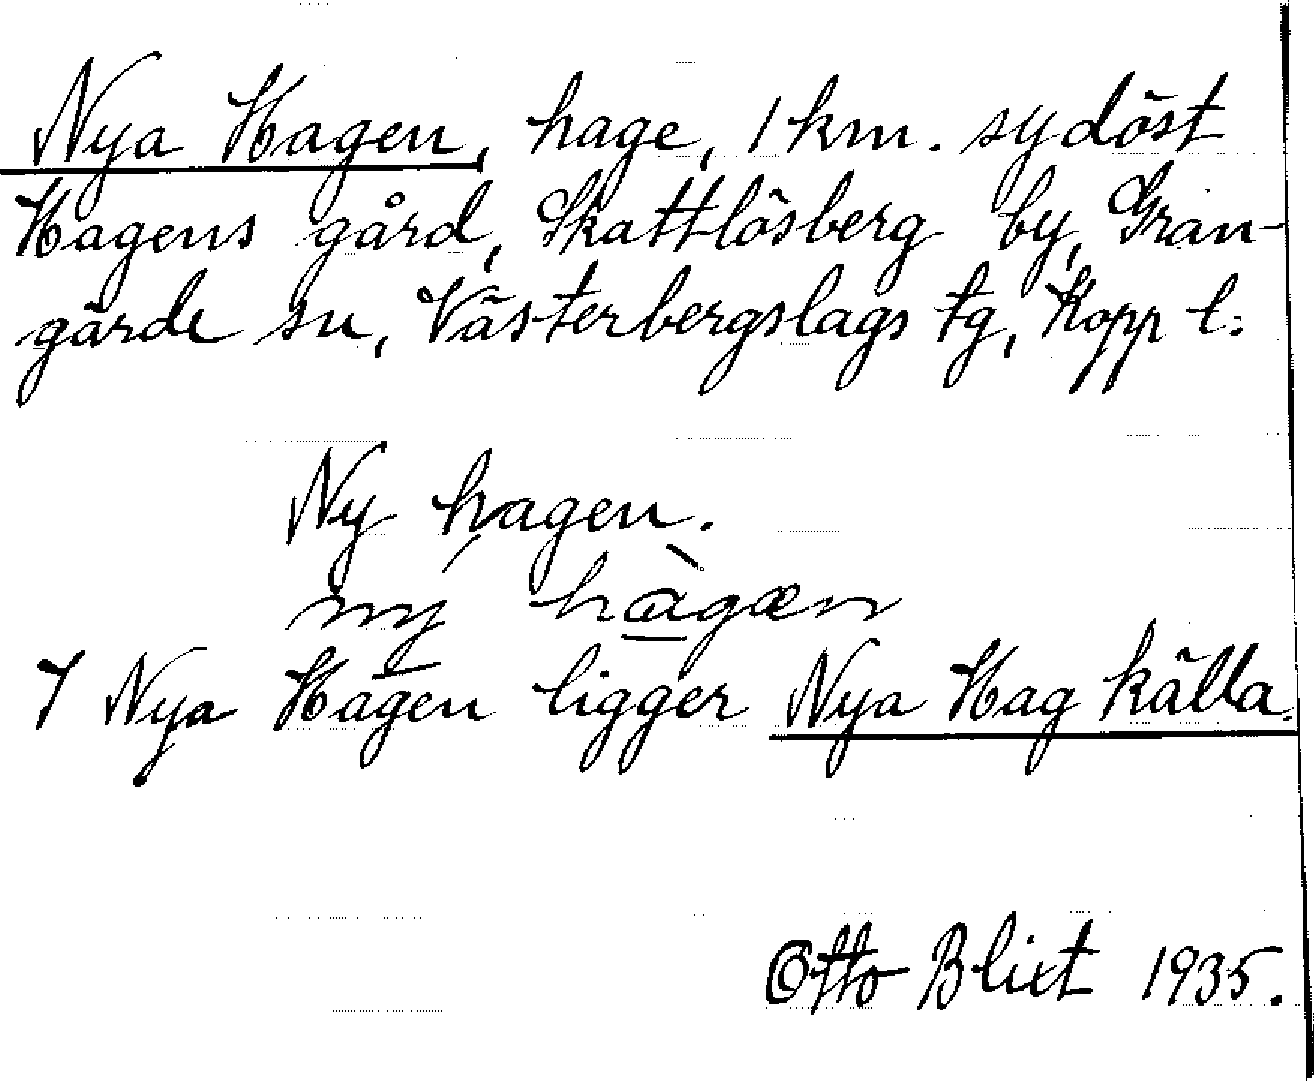 Nya Hagen, hage, 1 km. sydöst
Hagens gård, Skattlösberg by, Grän-
gärde sn, Västerbergslags tg, Kopp l:
Ny hagen.
ný hàgæn
I Nya Hagen ligger Nya Hag källa.
Otto Blixt 1935.